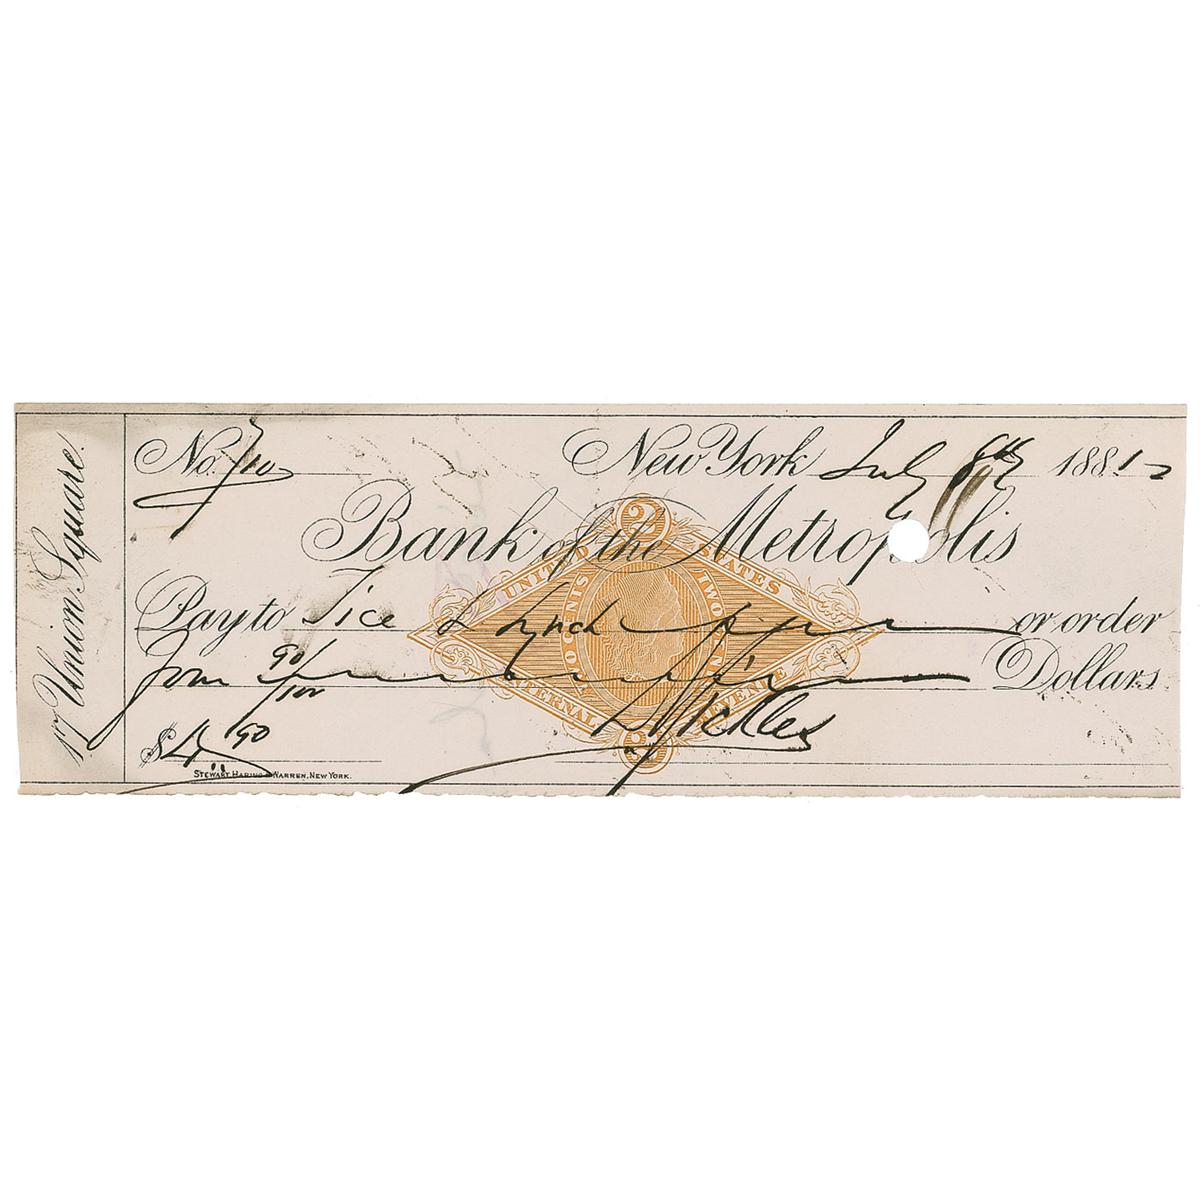 17 Union Square.
No. 710 New York July 8th 1881
Bank of the Metropolis
Pay to Tice & Lynch or order
Four 90/100 Dollars
$4.90
D Sickles
STEWART, HARING & WARREN, NEW YORK.
2
UNITED STATES
TWO CENTS TWO CENTS
INTERNAL REVENUE
2